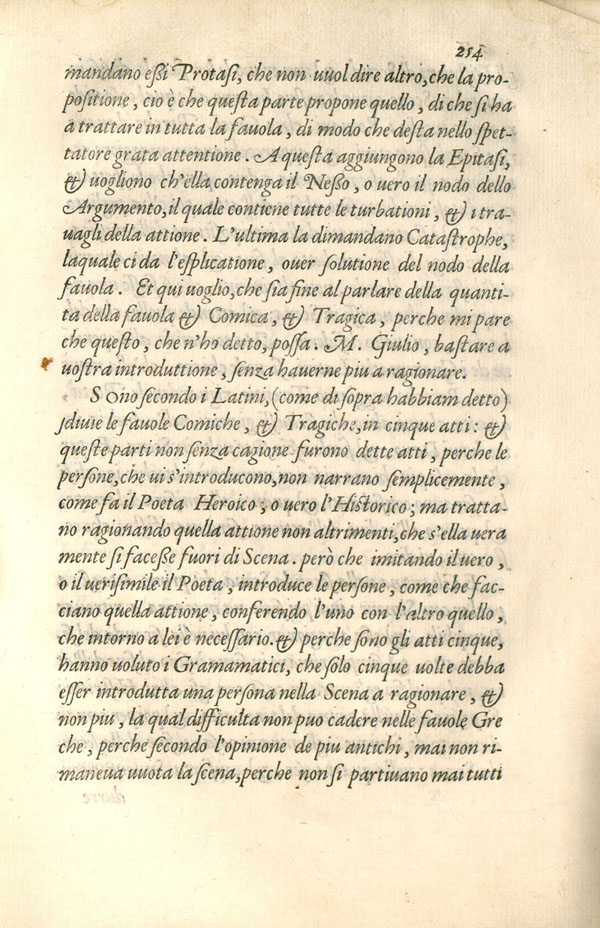 254
mandano eßi Protasi, che non uuol dire altro, che la pro-
positione, cio è che questa parte propone quello, di che si ha
a trattare in tutta la fauola, di modo che desta nello spet-
tatore grata attentione. A questa aggiungono la Epitasi,
& uogliono ch'ella contenga il Neßo, o uero il nodo dello
Argumento, il quale contiene tutte le turbationi, & i tra-
uagli della attione. L'ultima la dimandano Catastrophe,
laquale ci da l'esplicatione, ouer solutione del nodo della
fauola. Et qui uoglio, che sia fine al parlare della quanti-
tà della fauola & Comica, & Tragica, perche mi pare
che questo, che n'ho detto, possa. M. Giulio, bastare a
uostra introduttione, senza hauerne piu a ragionare.
SOno secondo i Latini, (come di sopra habbiam detto)
diuise le fauole Comiche, & Tragiche, in cinque atti: &
queste parti non senza cagione furono dette atti, perche le
persone, che ui s'introducono, non narrano semplicemente,
come fa il Poeta Heroico, o uero l'Historico; ma tratta-
no ragionando quella attione non altrimenti, che s'ella uera
mente si faceße fuori di Scena. però che imitando il uero,
o il uerisimile il Poeta, introduce le persone, come che fac-
ciano quella attione, conferendo l'uno con l'altro quello,
che intorno a lei è necessario. & perche sono gli atti cinque,
hanno uoluto i Gramamatici, che solo cinque uolte debba
esser introdutta una persona nella Scena a ragionare, &
non piu, la qual difficulta non puo cadere nelle fauole Gre
che, perche secondo l'opinione de piu antichi, mai non ri-
maneua uuota la scena, perche non si partiuano mai tutti